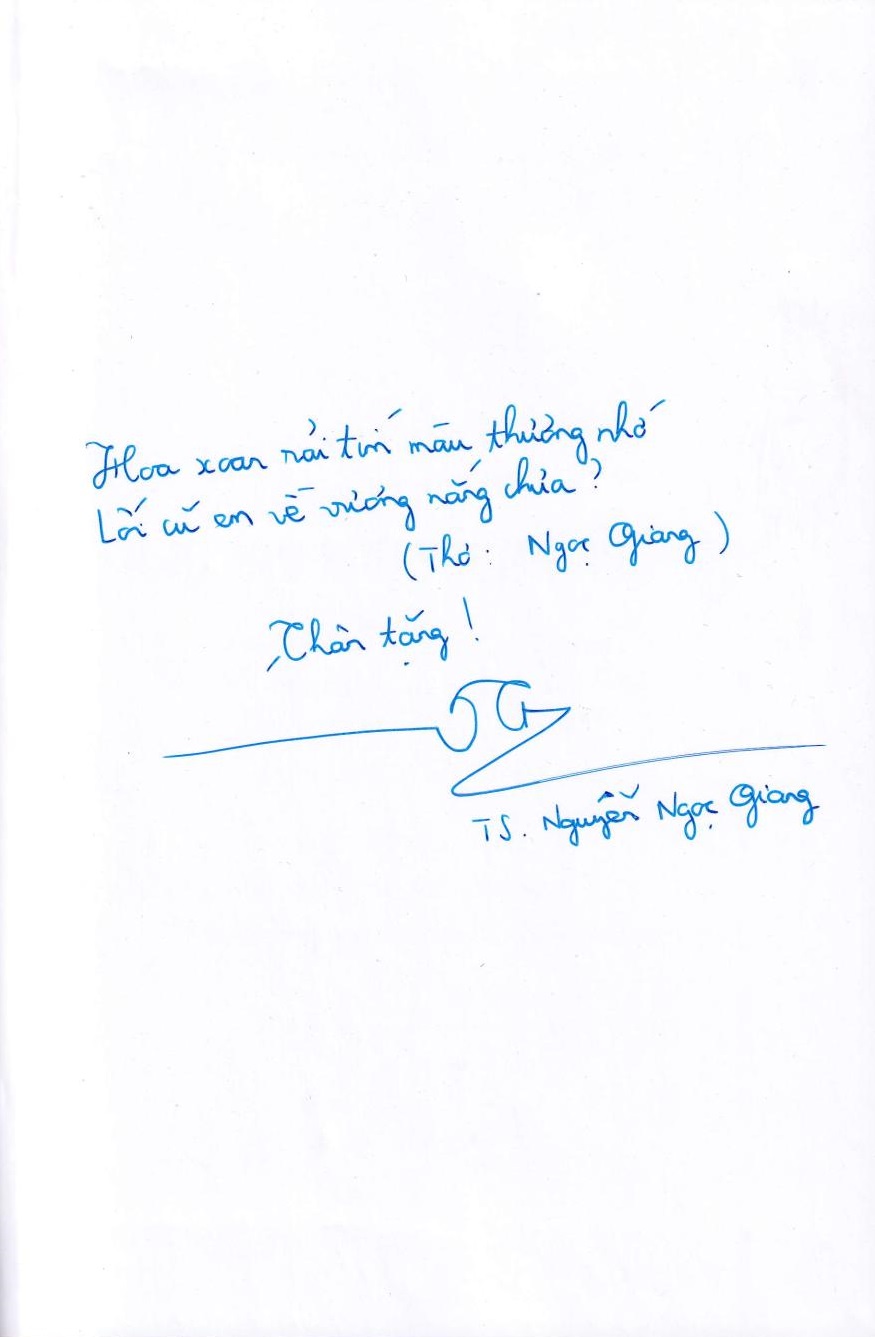 Hoa xoan rải tím màu thương nhớ
Lối cũ em về vương nắng chưa?
(Thơ: Ngọc Giang)
Thân tặng!
TS. Nguyễn Ngọc Giang